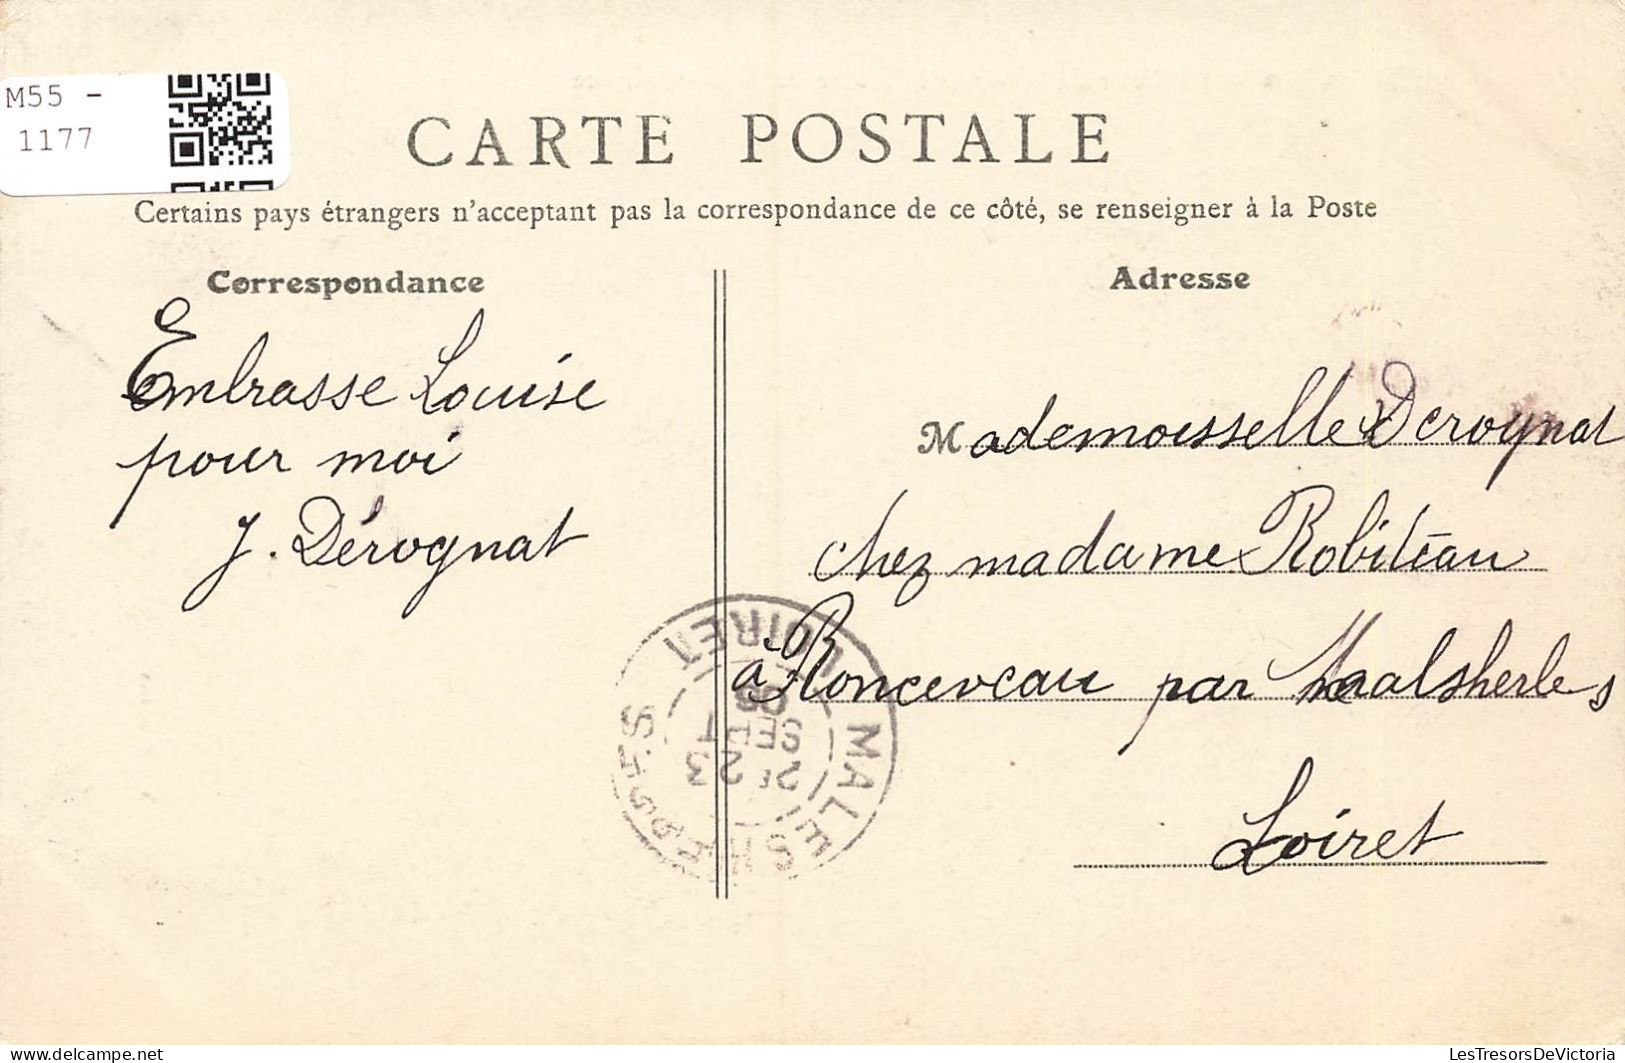 M55 -
1177
CARTE POSTALE
Certains pays étrangers n'acceptant pas la correspondance de ce côté, se renseigner à la Poste
Correspondance
Embrasse Louise
pour moi
J. Dérognat
Adresse
Mademoisselle Derognat
chez madame Robiteau
à Ronceveau par Malsherbes
Loiret
MALESHERBES
LOIRET
23
SEPT
05
delcampe.net
LesTresorsDeVictoria